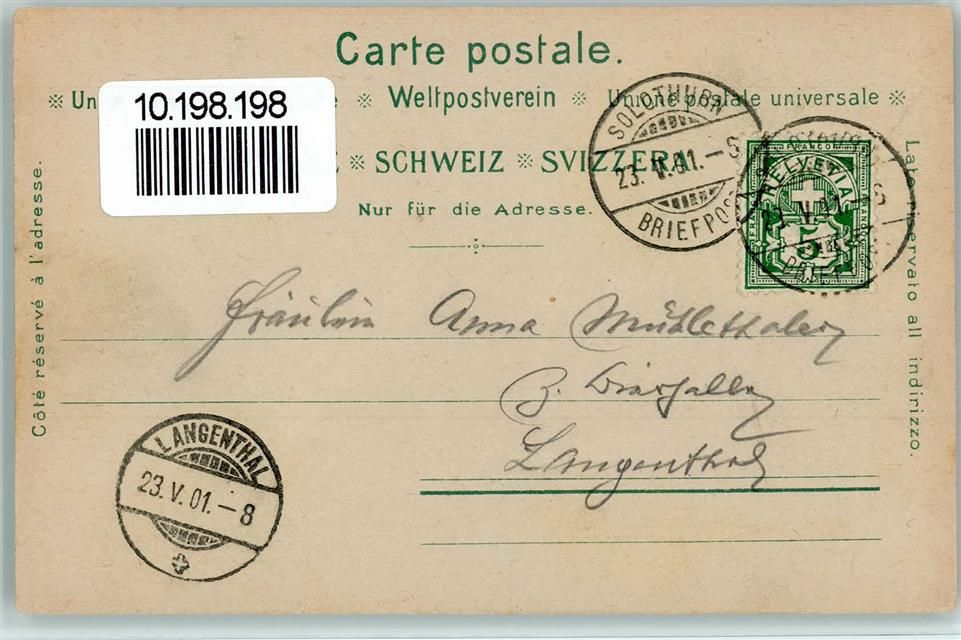 Carte postale.
10.198.198
※ Un ※ Weltpostverein ※ Unione postale universale ※
※ SCHWEIZ ※ SVIZZERA.
Nur für die Adresse.
Côté réservé à l'adresse.
Lato riservato all indirizzo.
SOLOTHURN
23. V. 01. – 8
BRIEFPOST
FRANCO
HELVETIA
5
Fräulein Anna Mühlethaler
z.
Langenthal
LANGENTHAL
23. V. 01. – 8